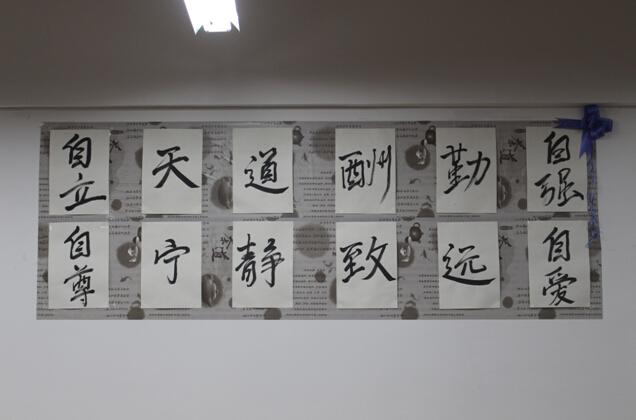 自立 天 道 酬 勤 自强
自尊 宁 静 致 远 自爱